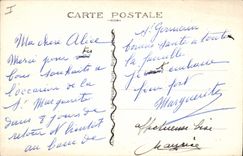 I
CARTE POSTALE
Ma chère Alice
Merci pour tes
bons souhaits à
l'occasion de la
St Marguerite
dans 8 jours de
retour et bientôt
au bain de
St Germain
bonne santé à toute
la famille
je embrasse
bien fort
Marguerite